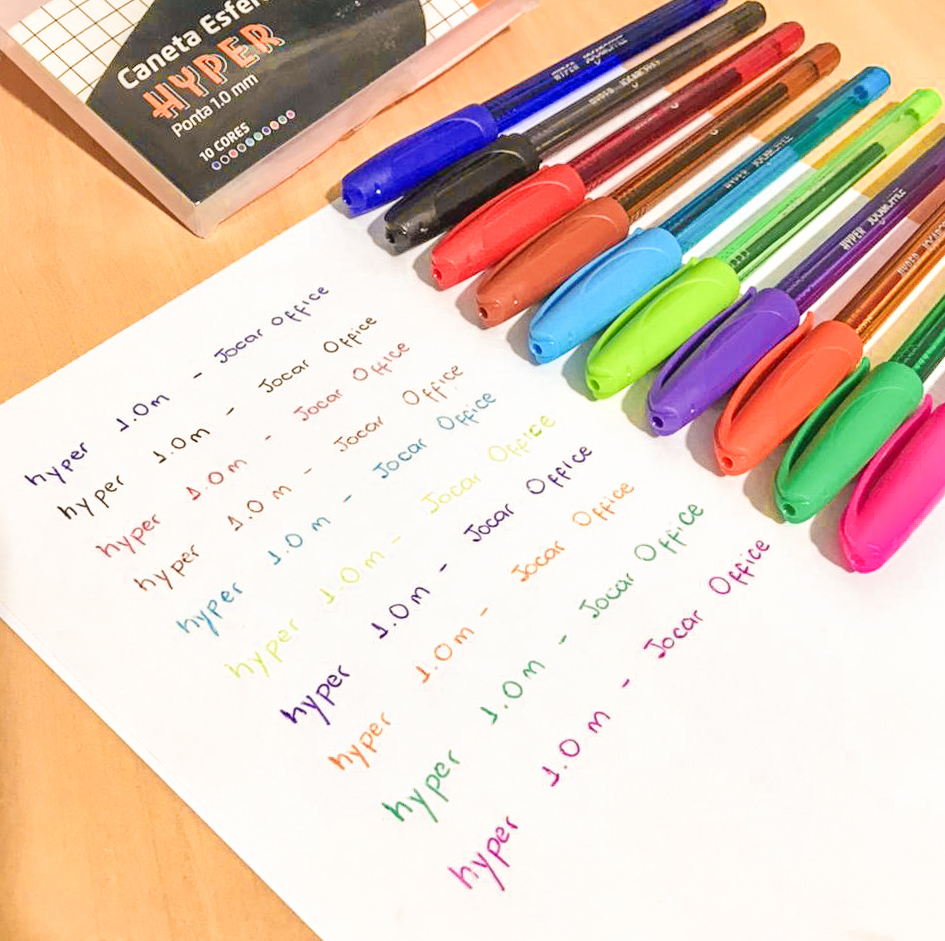 Caneta Esfer
HYPER
Ponta 1.0 mm
10 CORES
hyper 1.0m - Jocar office
hyper 1.0m - Jocar Office
hyper 1.0m - Jocar Office
hyper 1.0m - Jocar Office
hyper 1.0m - Jocar Office
hyper 1.0m - Jocar Office
hyper 1.0m - Jocar Office
hyper 1.0m - Jocar Office
hyper 1.0m - Jocar Office
hyper 1.0m - Jocar Office
HYPER
HYPER
HYPER